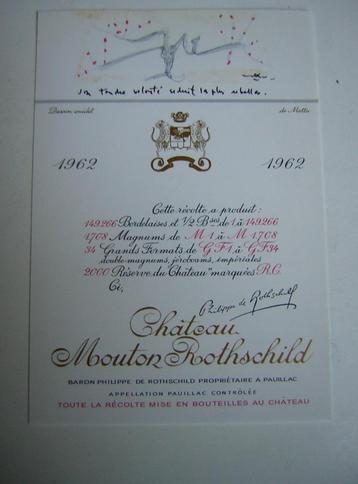 Sa tendre volonté séduit la plus rebelle.
Dessin inédit de Matta
1962 1962
Cette récolte a produit:
149.266 Bordelaises et 1/2 Bses de 1 à 149.266
1708 Magnums de M 1 à M 1708
34 Grands Formats de G F 1 à G F 34
double-magnums, jéroboams, impériales
2000 "Réserve du Château" marquées R.C.
Ci,
Philippe de Rothschild
Château
Mouton Rothschild
BARON PHILIPPE DE ROTHSCHILD PROPRIÉTAIRE A PAUILLAC
APPELLATION PAUILLAC CONTRÔLÉE
TOUTE LA RÉCOLTE MISE EN BOUTEILLES AU CHÂTEAU